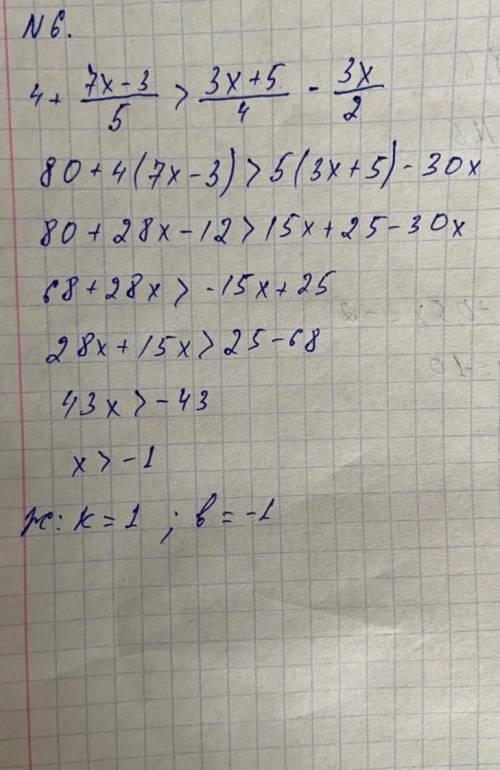 N 6.
4 + (7x - 3)/5 > (3x + 5)/4 - 3x/2
80 + 4(7x - 3) > 5(3x + 5) - 30x
80 + 28x - 12 > 15x + 25 - 30x
68 + 28x > -15x + 25
28x + 15x > 25 - 68
43x > -43
x > -1
к = 1 ; в = -1